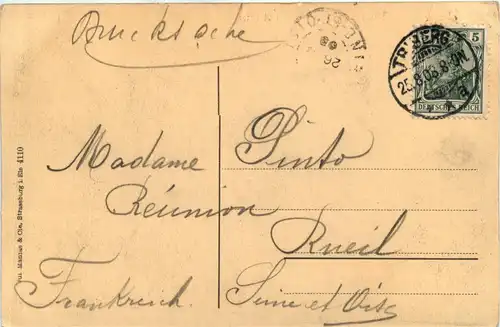 Drucksache
TRIBERG
25.8.09.8-9N.
a
5
DEUTSCHES REICH
Madame Pinto
Réunion
Rueil
Frankreich. Seine et Oise
Manias & Cie., Strassburg i. Els 4110